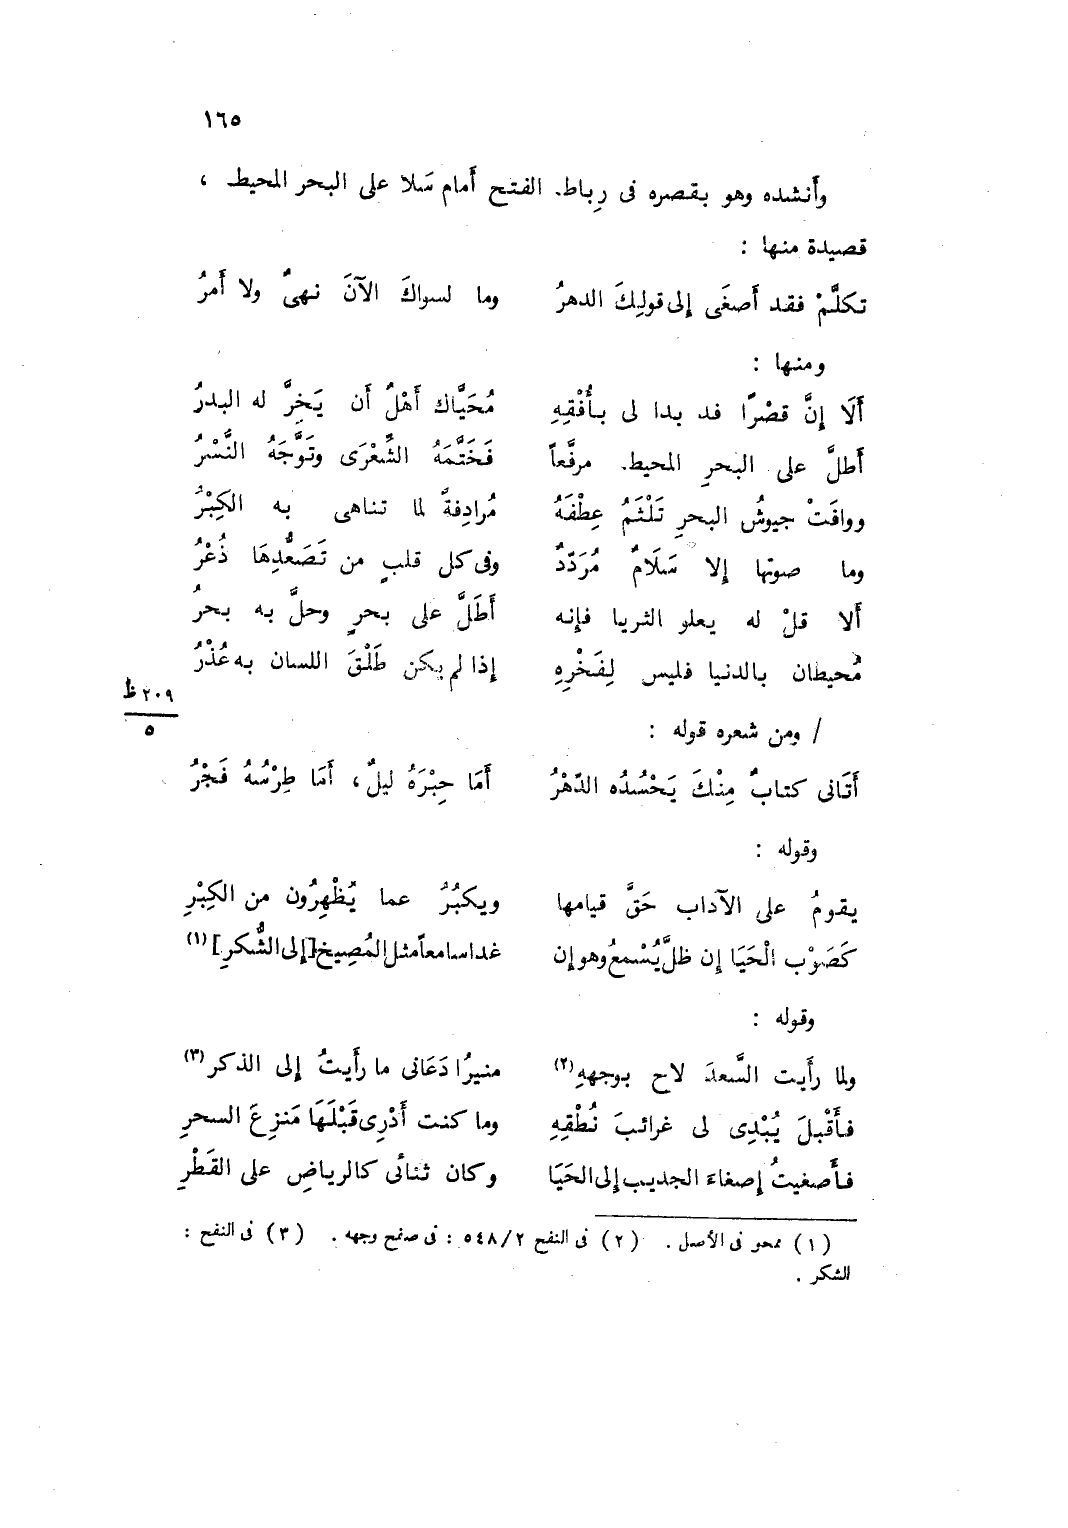 ١٦٥
وأَنشده وهو بقصره فى رِباط الفتح أَمام سَلا على البحر المحيط ،
قصيدة منها :
تكلَّمْ فقد أَصغَى إِلى قولِكَ الدهرُ وما لسواكَ الآنَ نهىٌ ولا أَمرُ
ومنها :
أَلَا إِنَّ قصْرًا قد بدا لى بأُفْقِهِ مُحَيَّاك أَهْلٌ أَن يَخِرَّ له البدرُ
أَطلَّ على البحرِ المحيط مرفَّعاً فَخَتَّمَهُ الشِّعْرَى وتَوَّجَهُ النَّسْرُ
ووافَتْ جيوشُ البحرِ تَلْثَمُ عِطْفَهُ مُرادِفةً لما تناهى به الكِبْرُ
وما صوتها إِلا سَلَامٌ مُرَدّدٌ وفى كل قلبٍ من تَصَعُّدِهَا ذُعْرُ
أَلا قلْ له يعلو الثريا فإِنه أَطَلَّ على بحرٍ وحلَّ به بحرُ
مُحيطان بالدنيا فليس لِفَخْرِهِ إِذا لم يكن طَلْقَ اللسان به عُذْرُ
٢٠٩ ظ
٥
/ ومن شعره قوله :
أَتَانى كتابٌ مِنْكَ يَحْسُدُه الدّهْرُ أَمَا حِبْرَهُ ليلٌ ، أَمَا طِرْسُهُ فَجْرُ
وقوله :
يقومُ على الآداب حَقَّ قيامها ويكبُرُ عما يُظْهِرُون من الكِبْرِ
كَصَوْب الْحَيَا إِن ظلَّ يُسْمعُ وهو إِن غدا سامعاً مثل المُصِيخ [إِلى الشُّكرِ] (١)
وقوله :
ولما رأَيت السَّعدَ لاح بوجههِ (٢) منيرًا دَعَانى ما رأَيتُ إِلى الذكر (٣)
فأَقْبلَ يُبْدِى لى غرائبَ نُطْقِهِ وما كنت أَدْرِى قَبْلَهَا مَنزِعَ السحرِ
فأَصغيتُ إِصغاءَ الجديب إِلى الحَيَا وكان ثنائى كالرياضِ على القَطْرِ
(١) ممحو فى الأصل . (٢) فى النفح ٥٤٨/٢ : فى صفح وجهه . (٣) فى النفح :
الشكر .